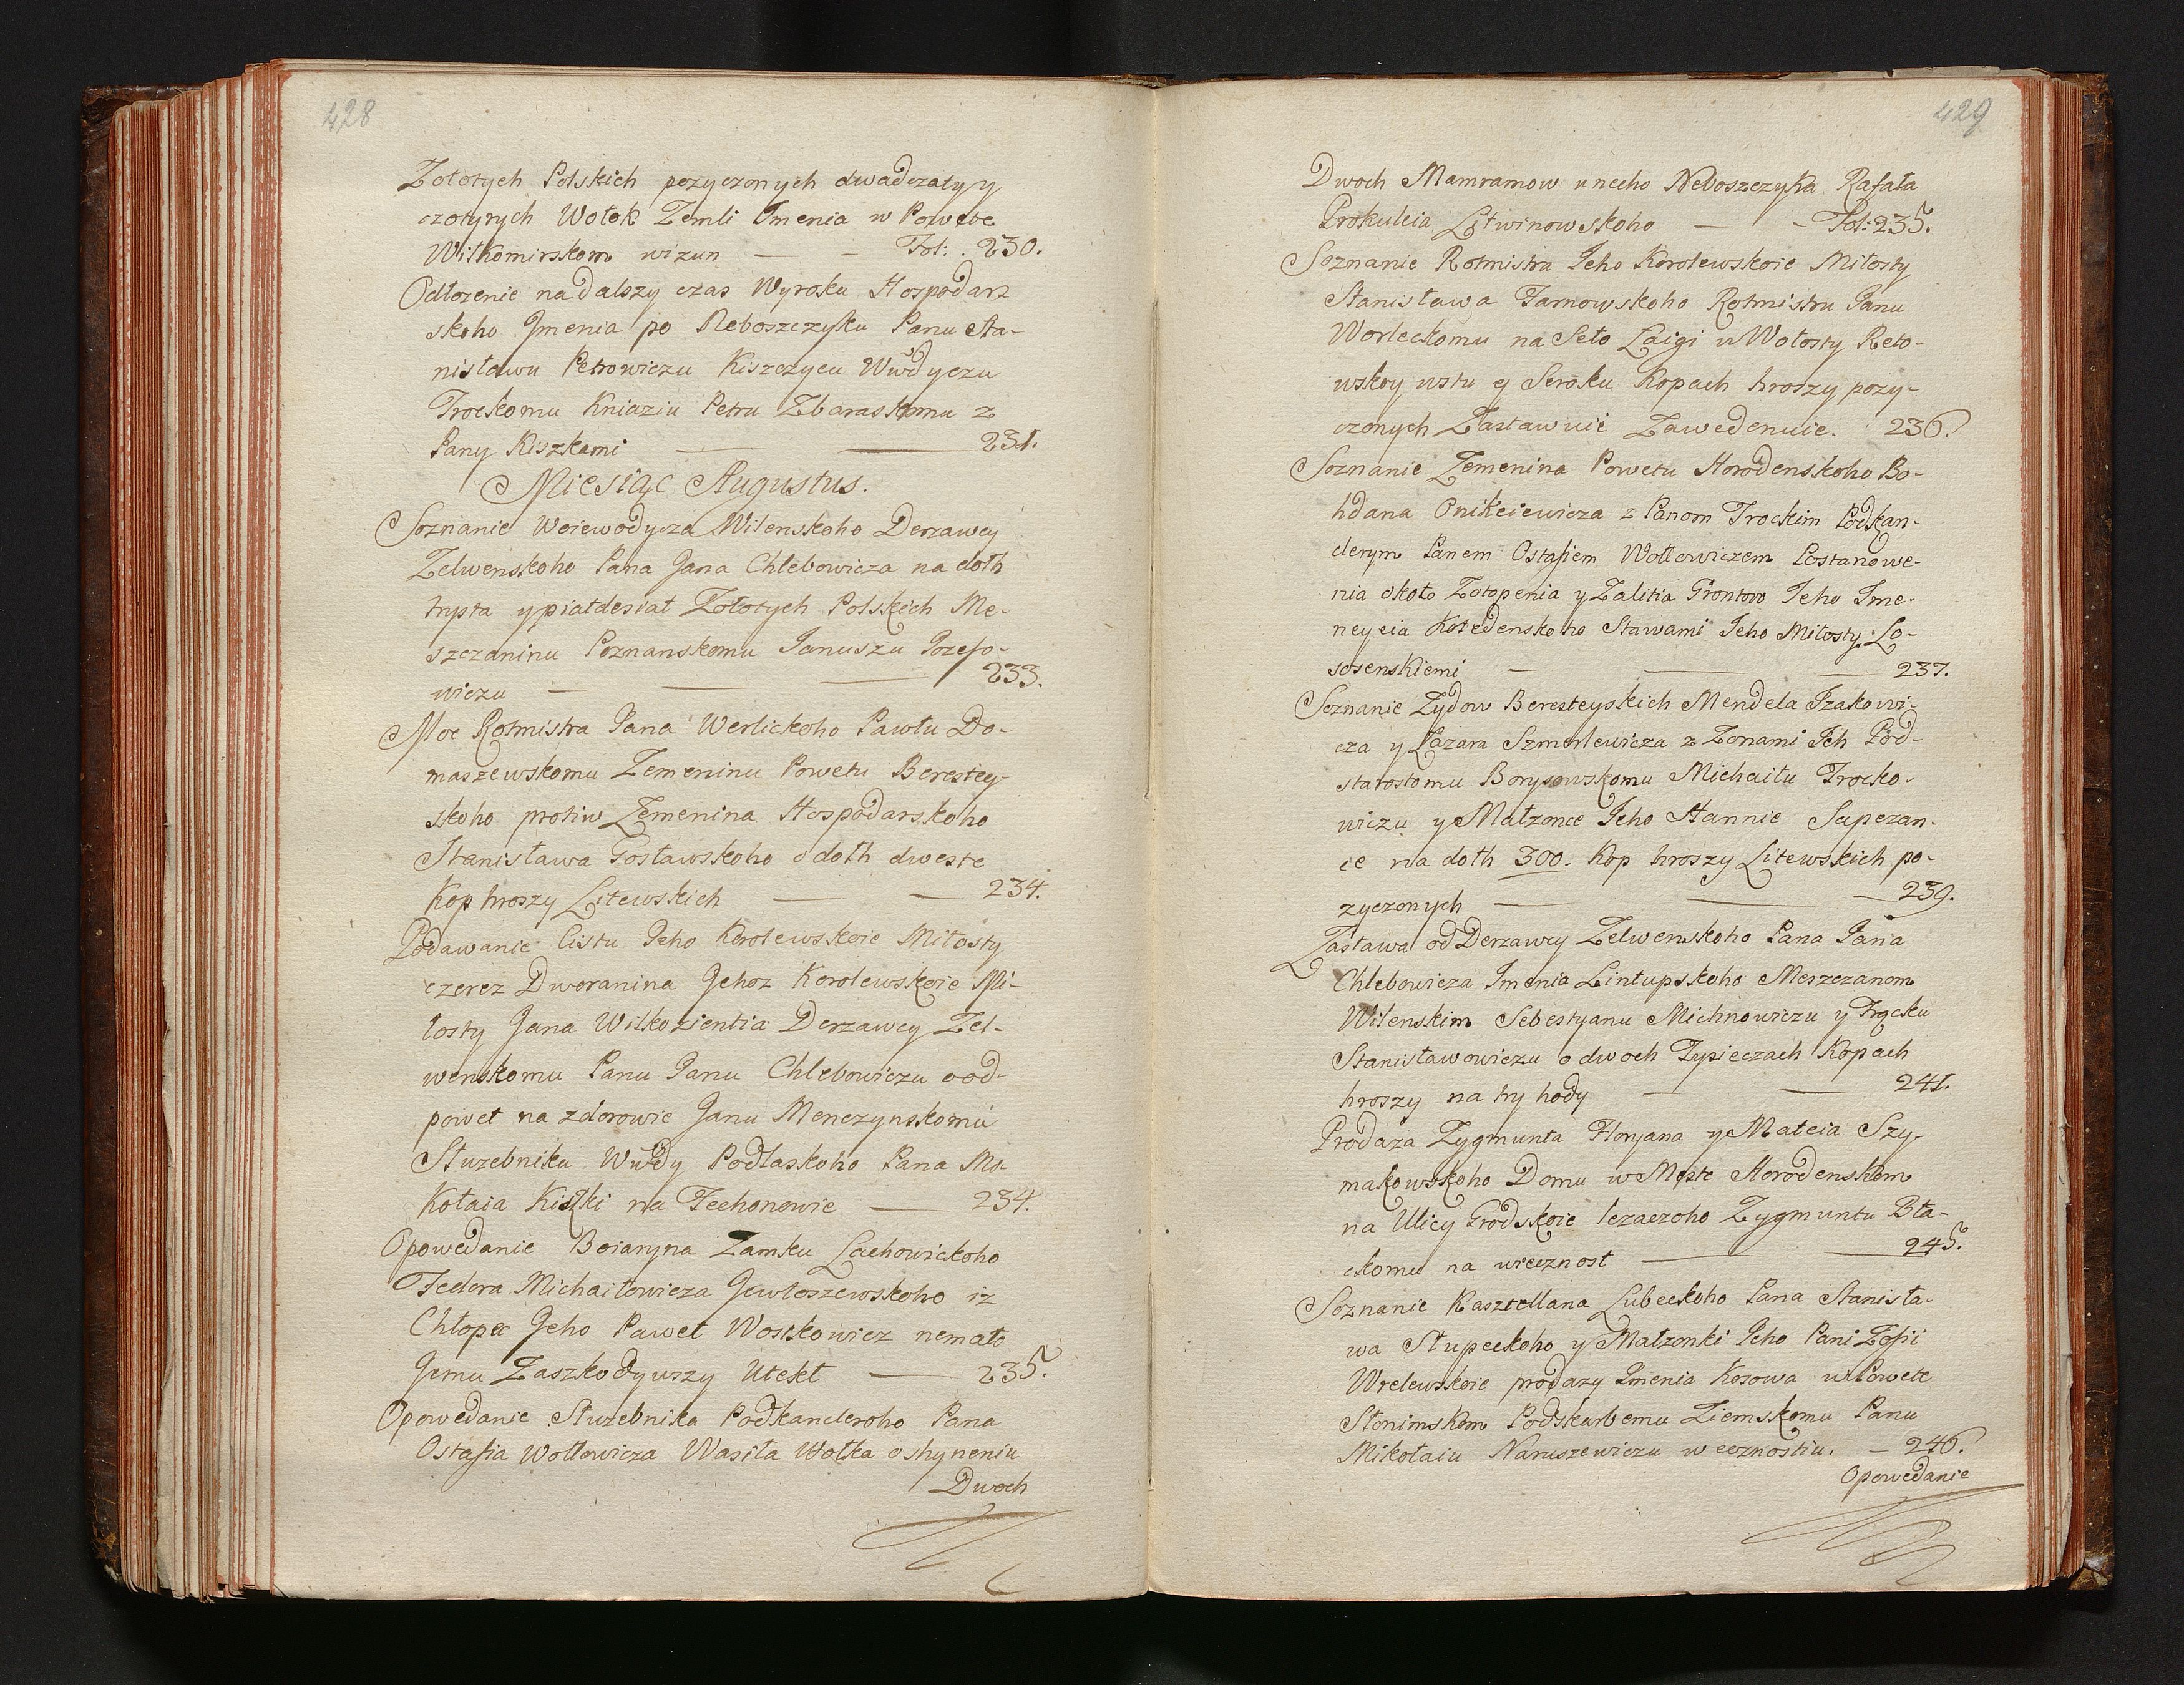 428
Zołotych Polskich pozyczonych dwadczaty y
czotyrych Wołok Zemli Imenia w Powete
Wilkomirskom wizun — - Fol: 230.
Odłozenie nadalszy czas Wyroku Hospodarz
skoho Imenia po Neboszczyku Panu Sta-
nisławu Petrowiczu Kiszczycu Wwdyczu
Trockomu Kniaziu Petru Zbaraskomu z
Pany Kiszkami — — 231.
Miesiąc Augustus.
Soznanie Woiewodycza Wilenskoho Derzawcy
Zelwenskoho Pana Jana Chlebowicza na doth
trysta y piatdesiat Zołotych Polskich Me-
szczaninu Poznanskomu Januszu Jozefo-
wiczu — — — 233.
Moc Rotmistra Pana Werlickoho Pawłu Do-
maszewskomu Zemeninu Powetu Berestey-
skoho protiw Zemenina Hospodarskoho
Stanisława Gosławskoho o doth dweste
Kop hroszy Litewskich — — 234.
Podawanie Listu Jeho Korolewskoie Miłosty
czerez Dworanina Jehoz Korolewskoie Mi-
łosty Jana Wilkozientia Derzawcy Zel-
wenskomu Panu Janu Chlebowiczu o od-
powet na zdorowie Janu Menczynskomu
Słuzebniku Wwdy Podlaskoho Pana Mi-
kołaia Kiszki na Fechonowie — 234.
Opowedanie Boiaryna Zamku Lachowickoho
Fedora Michaiłowicza Jewłoszewskoho iz
Chłopec Jeho Paweł Woskowicz nemało
Jemu Zaszkodywszy Utekł — 235.
Opowedanie Słuzebnika Podkancleroho Pana
Ostafia Wołłowicza Wasila Wołka o zhyneniu
Dwoch
429
Dwoch Mamramow u neho Neboszczyka Rafała
Prokuleia Litwinowskoho — - Fol: 235.
Soznanie Rotmistra Jeho Korolewskoie Miłosty
Stanisława Tarnowskoho Rotmistru Panu
Worleckomu na Seło Laigi u Wołosty Reto-
wskoy w stu y Seroku Kopach hroszy pozy-
czonych Zastawnie Zawedenuie. 236.
Soznanie Zemenina Powetu Horodenskoho Bo-
hdana Onikeiewicza z Panom Trockim Podkan-
clerym Panem Ostafiem Wołłowiczem Postanowe-
nia około Zotopenia y Zalitia Grontow Jeho Ime-
neycia Kotedenskoho Stawami Jeho Miłosty Lo-
sosenskiemi — — — 237.
Soznanie Zydow Beresteyskich Mendela Izakowi-
cza y Lazara Szmerlewicza z Zonami Ich Pod-
starostomu Borysowskomu Michaiłu Trocko-
wiczu y Małzonce Jeho Hannie Sapezan-
ce na doth 300. Kop hroszy Litewskich po-
zyczonych — — — 239.
Zastawa od Derzawcy Zelwenskoho Pana Jana
Chlebowicza Imenia Lintupskoho Meszczanom
Wilenskim Sebestyanu Michnowiczu y Frącku
Stanisławowiczu o dwoch Tysieczach Kopach
hroszy na try hody — — 241.
Prodaza Zygmunta Floryana y Mateia Szy-
makowskoho Domu w Meste Horodenskom
na Ulicy Grodskoie lezaczoho Zygmuntu Bła-
ckomu na wiecznost — — 245.
Soznanie Kasztellana Lubeckoho Pana Stanisła-
wa Słupeckoho y Małzonki Jeho Pani Zofii
Wrelewskoie prodazy Imenia Kosowa w Powete
Słonimskom Podskarbemu Ziemskomu Panu
Mikołaiu Naruszewiczu w ecznostiu. — 246.
Opowedanie